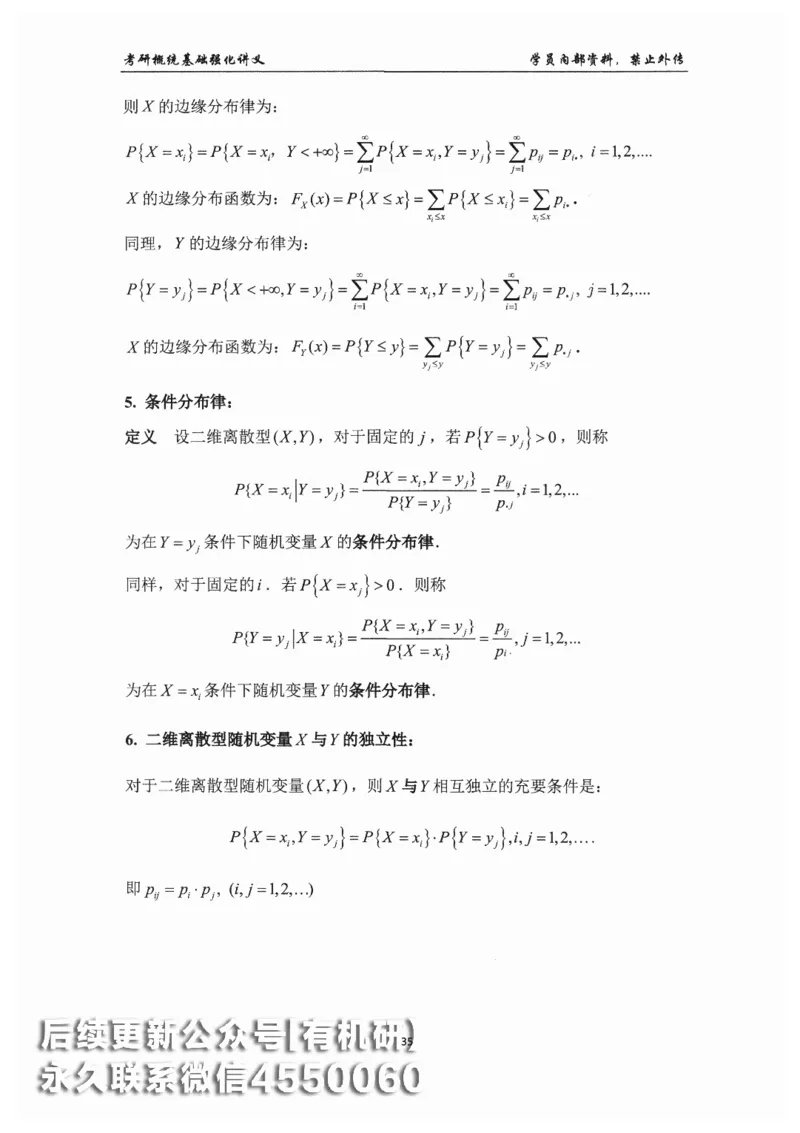 考研概统基础强化讲义 学员内部资料，禁止外传
则 X 的边缘分布律为：
P{X = x_i} = P{X = x_i, Y < +∞} = ∑_{j=1}^{∞} P{X = x_i, Y = y_j} = ∑_{j=1}^{∞} p_{ij} = p_{i•}, i = 1,2,....
X 的边缘分布函数为： F_X(x) = P{X ≤ x} = ∑_{x_i≤x} P{X ≤ x_i} = ∑_{x_i≤x} p_{i•}．
同理， Y 的边缘分布律为：
P{Y = y_j} = P{X < +∞, Y = y_j} = ∑_{i=1}^{∞} P{X = x_i, Y = y_j} = ∑_{i=1}^{∞} p_{ij} = p_{•j}, j = 1,2,....
X 的边缘分布函数为： F_Y(x) = P{Y ≤ y} = ∑_{y_j≤y} P{Y = y_j} = ∑_{y_j≤y} p_{•j}．
5. 条件分布律：
定义 设二维离散型 (X,Y)，对于固定的 j，若 P{Y = y_j} > 0，则称
P{X = x_i | Y = y_j} = P{X = x_i, Y = y_j} / P{Y = y_j} = p_{ij} / p_{·j}, i = 1,2,...
为在 Y = y_j 条件下随机变量 X 的条件分布律．
同样，对于固定的 i．若 P{X = x_j} > 0．则称
P{Y = y_j | X = x_i} = P{X = x_i, Y = y_j} / P{X = x_i} = p_{ij} / p_{i·}, j = 1,2,...
为在 X = x_i 条件下随机变量 Y 的条件分布律．
6. 二维离散型随机变量 X 与 Y 的独立性：
对于二维离散型随机变量 (X,Y)，则 X 与 Y 相互独立的充要条件是：
P{X = x_i, Y = y_j} = P{X = x_i}·P{Y = y_j}, i, j = 1,2,….
即 p_{ij} = p_i · p_j, (i, j = 1,2,…)
后续更新公众号[有机研]
35
永久联系微信4550060